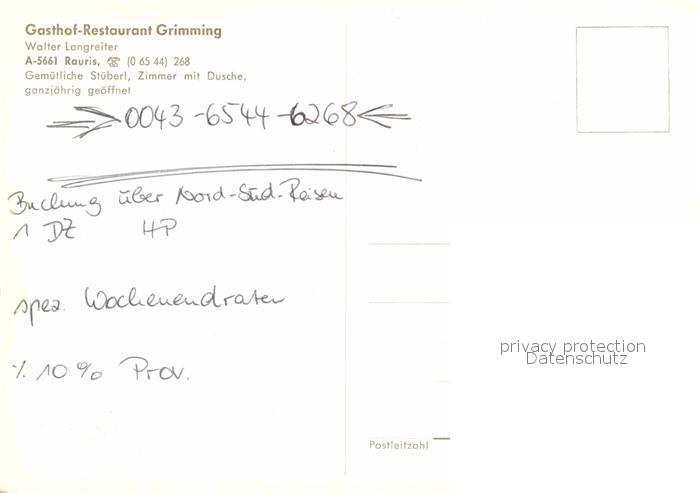 Gasthof-Restaurant Grimming
Walter Langreiter
A-5661 Rauris, ☏ (0 65 44) 268
Gemütliche Stüberl, Zimmer mit Dusche,
ganzjährig geöffnet
0043-6544-6268
Buchung über Nord-Süd-Reisen
1 DZ HP
spez. Wochenendraten
% 10% Prov.
privacy protection
Datenschutz
Postleitzahl